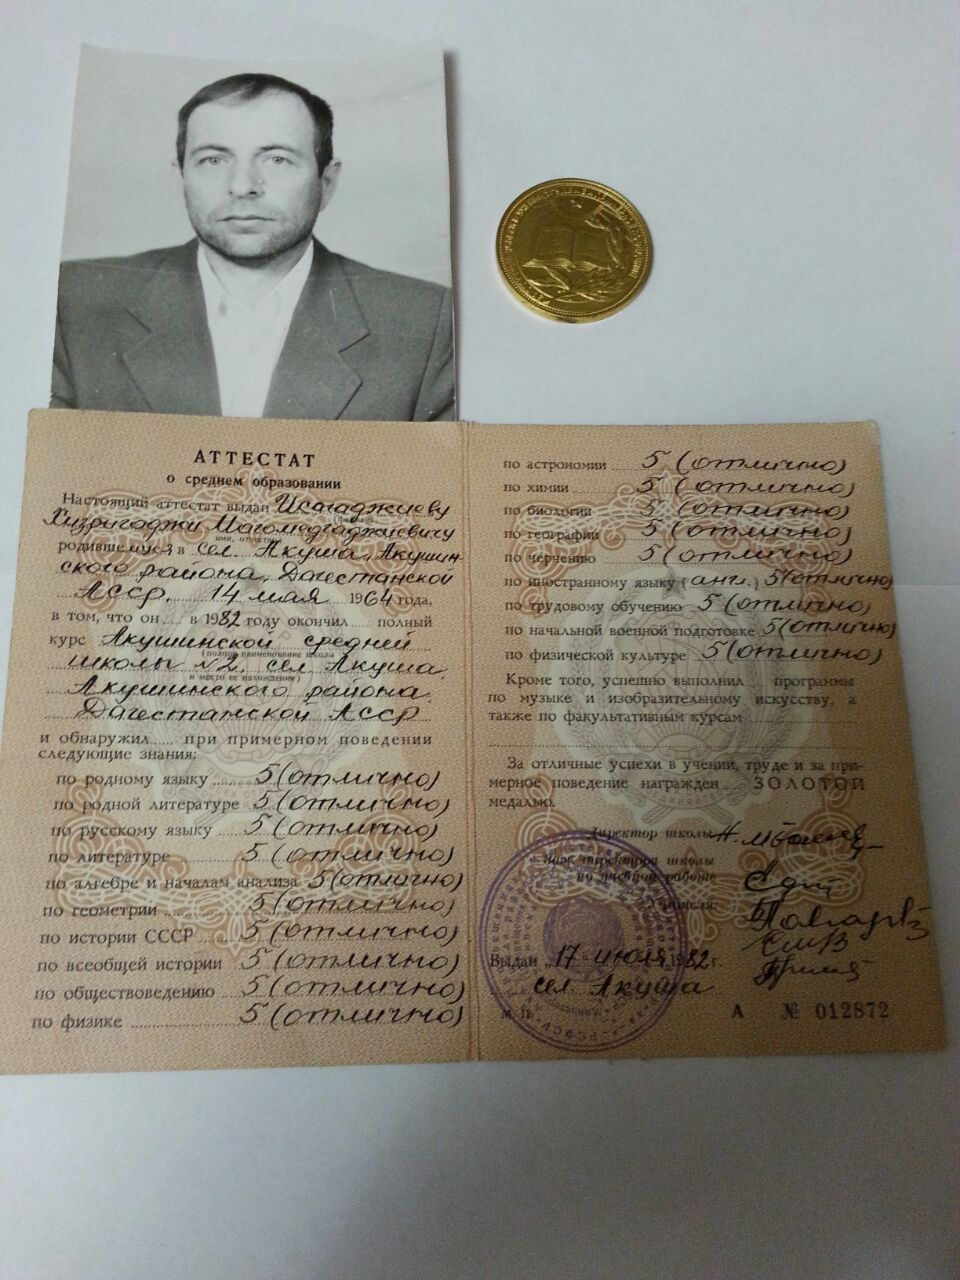 АТТЕСТАТ
о среднем образовании
Настоящий аттестат выдан Исагаджиеву
Хизригаджи Магомедгаджиевичу
имя, отчество
родившемуся в сел. Акуша, Акушин-
ского района, Дагестанской
АССР, 14 мая 1964 года,
в том, что он в 1982 году окончил полный
курс Акушинской средней
(полное наименование школы
школы №2, сел. Акуша,
и место ее нахождения)
Акушинского района
Дагестанской АССР
и обнаружил при примерном поведении
следующие знания:
по родному языку 5 (отлично)
по родной литературе 5 (отлично)
по русскому языку 5 (отлично)
по литературе 5 (отлично)
по алгебре и началам анализа 5 (отлично)
по геометрии 5 (отлично)
по истории СССР 5 (отлично)
по всеобщей истории 5 (отлично)
по обществоведению 5 (отлично)
по физике 5 (отлично)
по астрономии 5 (отлично)
по химии 5 (отлично)
по биологии 5 (отлично)
по географии 5 (отлично)
по черчению 5 (отлично)
по иностранному языку (анг.) 5 (отлично)
по трудовому обучению 5 (отлично)
по начальной военной подготовке 5 (отлично)
по физической культуре 5 (отлично)
Кроме того, успешно выполнил программы
по музыке и изобразительному искусству, а
также по факультативным курсам
За отличные успехи в учении, труде и за при-
мерное поведение награжден ЗОЛОТОЙ
медалью.
Директор школы
Зам. директора школы
по учебной работе
Учителя:
Выдан 17 июля 1982 г.
сел. Акуша
М. П.
А № 012872